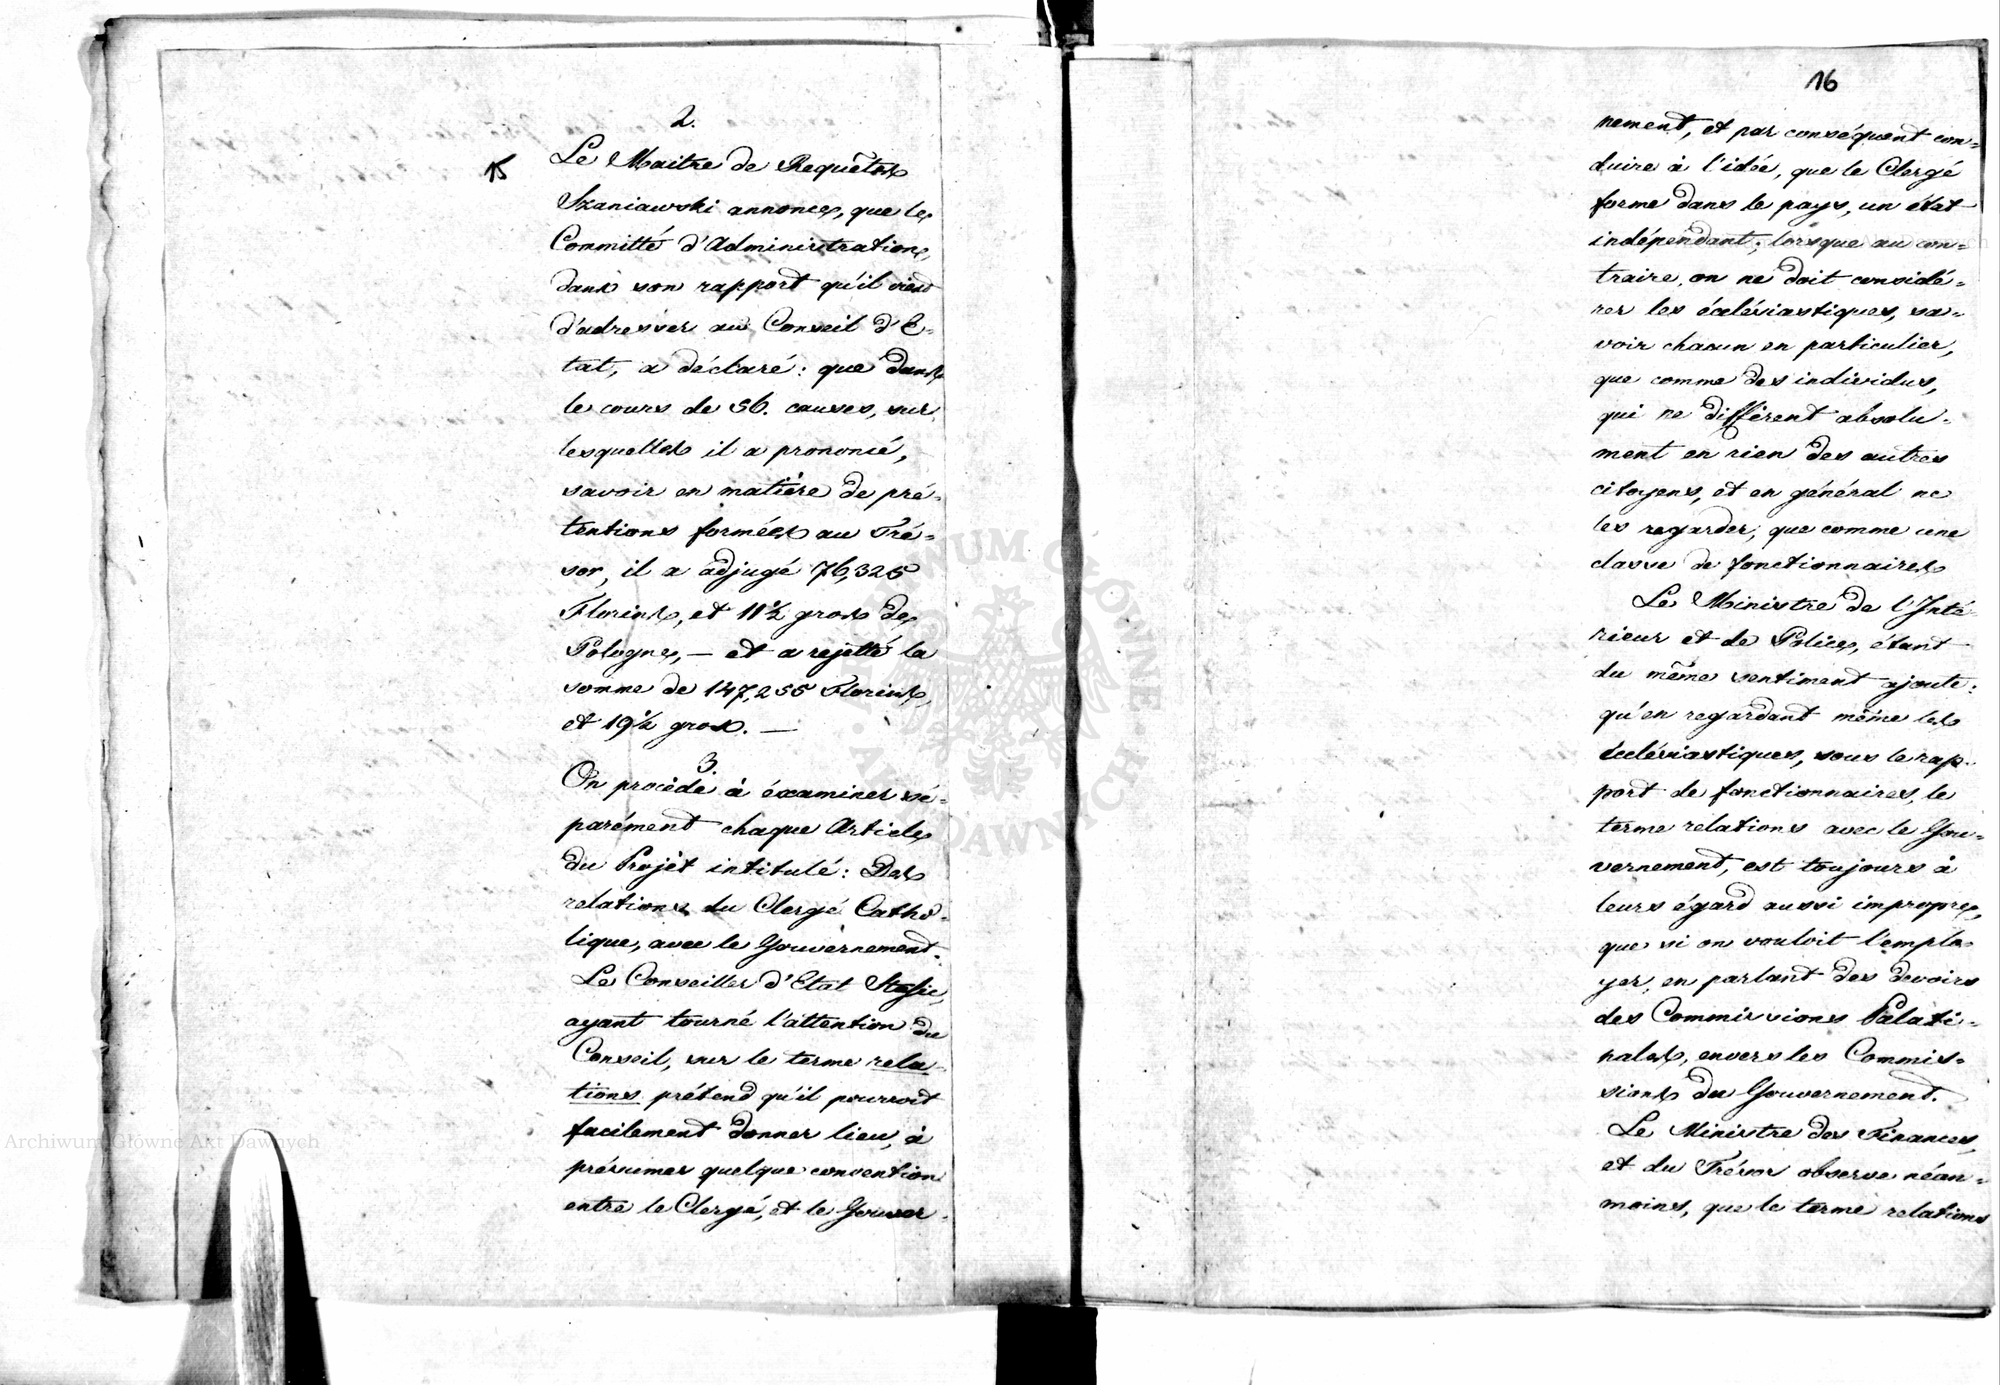 2.
Le Maitre de Requêtes
Szaniawski annonce, que le
Committé d'Administration,
dans son rapport qu'il vient
d'adresser au Conseil d'E-
tat, a déclaré: que dans
le cours de 56. causes, sur
lesquelles il a prononcé,
savoir en matière de pré-
tentions formées au Tré-
sor, il a adjugé 76,325
Florins, et 11½ gros de
Pologne, — et a rejetté la
somme de 147,255 Florins,
et 19½ gros. —
3.
On procède à éxaminer sé-
parément chaque Article
du Projèt intitulé: Des
relations du Clergé Catho-
lique, avec le Gouvernement.
Le Conseiller d'Etat Stasic,
ayant tourné l'attention du
Conseil, sur le terme rela-
tions prétend qu'il pourroit
facilement donner lieu, à
présumer quelque convention
entre le Clergé, et le Gouver-
16
nement, et par conséquent con-
duire à l'idée, que le Clergé
forme dans le pays, un état
indépendant; lorsque au con-
traire, on ne doit considé-
rer les écclésiastiques, sa-
voir chacun en particulier,
que comme des individus,
qui ne diffèrent absolu-
ment en rien des autres
citoyens, et en général ne
les regarder, que comme une
classe de fonctionnaires
Le Ministre de l'Inté-
rieur et de Police, étant
du même sentiment ajoute:
qu'en regardant même les
écclésiastiques, sous le rap-
port de fonctionnaires, le
terme relations avec le Gou-
vernement, est toujours à
leurs égard aussi impropre,
que si on vouloit l'emplo-
yer, en parlant des devoirs
des Commissions Palati-
nales, envers les Commis-
sions du Gouvernement.
Le Ministre des Finances,
et du Trésor observe néan-
moins, que le terme relations
Archiwum Główne Akt Dawnych
ARCHIWUM GŁÓWNE · AKT DAWNYCH ·